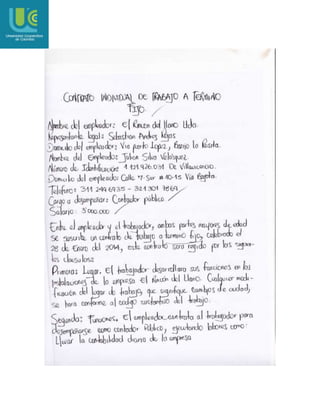 UC
Universidad Cooperativa
de Colombia
CONTRATO INDIVIDUAL DE TRABAJO A TERMINO
FIJO.
Nombre del empleador: El Rincon del llano Ltda.
Representante legal: Sebastian Andres Rojas
Domicilio del empleador: Via puerto Lopez,
Nombre del Empleado: Julian Silva Velásquez
Número de Identificación 1.121.926.031 De Villavicencio.
Domicilio del empleado: Calle 7 Sur # 40-15 Via
Teléfono: 311 244 6935 - 321 301 7869
Cargo a desempeñar: Contador público
Salario: 3'000.000
Entre el empleador y el trabajador, ambas partes mayores de edad
se suscribe un contrato de trabajo a termino fijo, celebrado el
28 de Enero del 2014, este contrato sera regido por las siguien-
tes clausulas:
Primera: Lugar. El trabajador desarrollara sus funciones en las
instalaciones de la empresa El Rincón del Llano. Cualquier modi-
ficacion del lugar de trabajo, que signifique cambios de ciudad,
se hara conforme al codigo sustantivo del trabajo.
Segunda: Funciones. El empleador contrata al trabajador para
desempeñarse como contador Público, ejecutando labores como:
Llevar la contabilidad diaria de la empresa